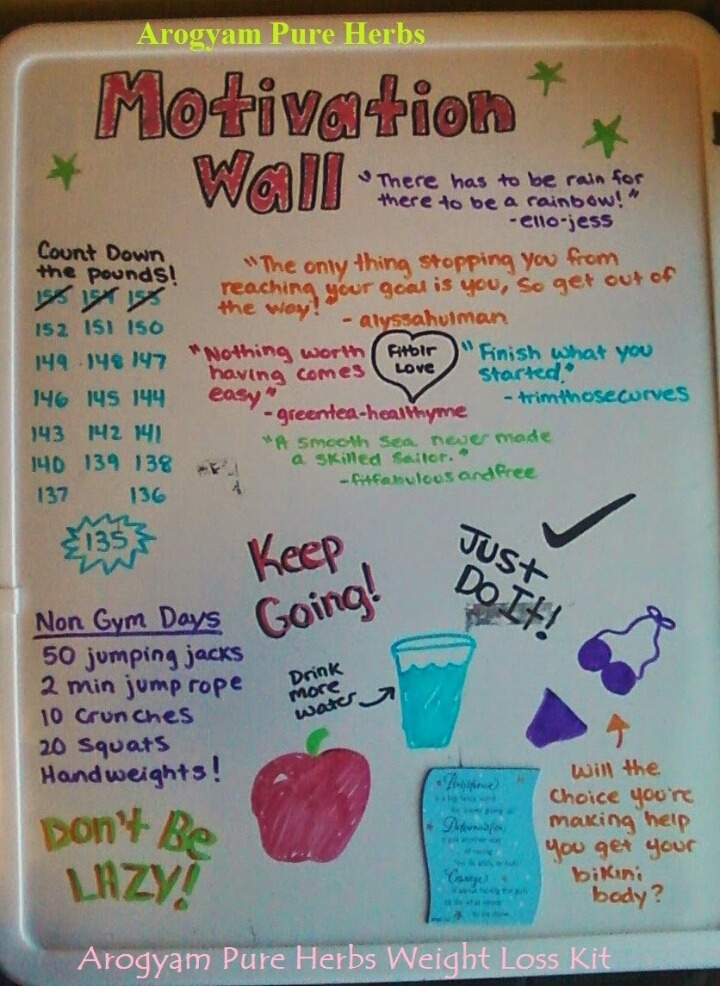 Arogyam Pure Herbs
Motivation
Wall
"There has to be rain for
there to be a rainbow!"
-ello-jess
Count Down
the pounds!
155 154 153
152 151 150
149 148 147
146 145 144
143 142 141
140 139 138
137 136
135
"The only thing stopping you from
reaching your goal is you, So get out of
the way!"
- alyssahulman
"Nothing worth
having comes
easy"
- greentea-healthyme
Fitblr
Love
"Finish what you
started."
- trimthosecurves
"A smooth sea never made
a skilled sailor."
-fitfabulousandfree
Keep
Going!
Just
Do It!
Non Gym Days
50 jumping jacks
2 min jump rope
10 crunches
20 squats
Handweights!
Drink
more
water
Don't Be
LAZY!
Persistence
Determination
Courage
Will the
choice you're
making help
you get your
bikini
body?
Arogyam Pure Herbs Weight Loss Kit